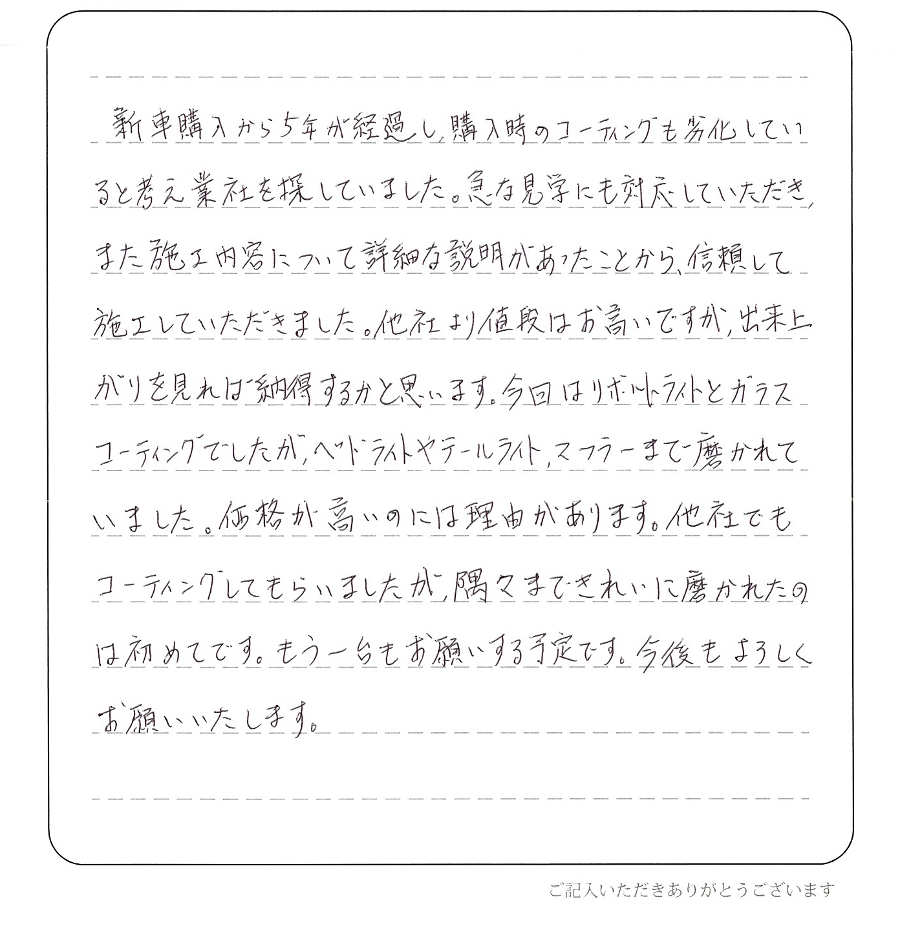 新車購入から5年が経過し、購入時のコーティングも劣化してい
ると考え業社を探していました。急な見学にも対応していただき、
また施工内容について詳細な説明があったことから、信頼して
施工していただきました。他社より値段はお高いですが、出来上
がりを見れば納得するかと思います。今回はリボルトライトとガラス
コーティングでしたが、ヘッドライトやテールライト、マフラーまで磨かれて
いました。価格が高いのには理由があります。他社でも
コーティングしてもらいましたが、隅々まできれいに磨かれたの
は初めてです。もう一台もお願いする予定です。今後もよろしく
お願いいたします。
ご記入いただきありがとうございます